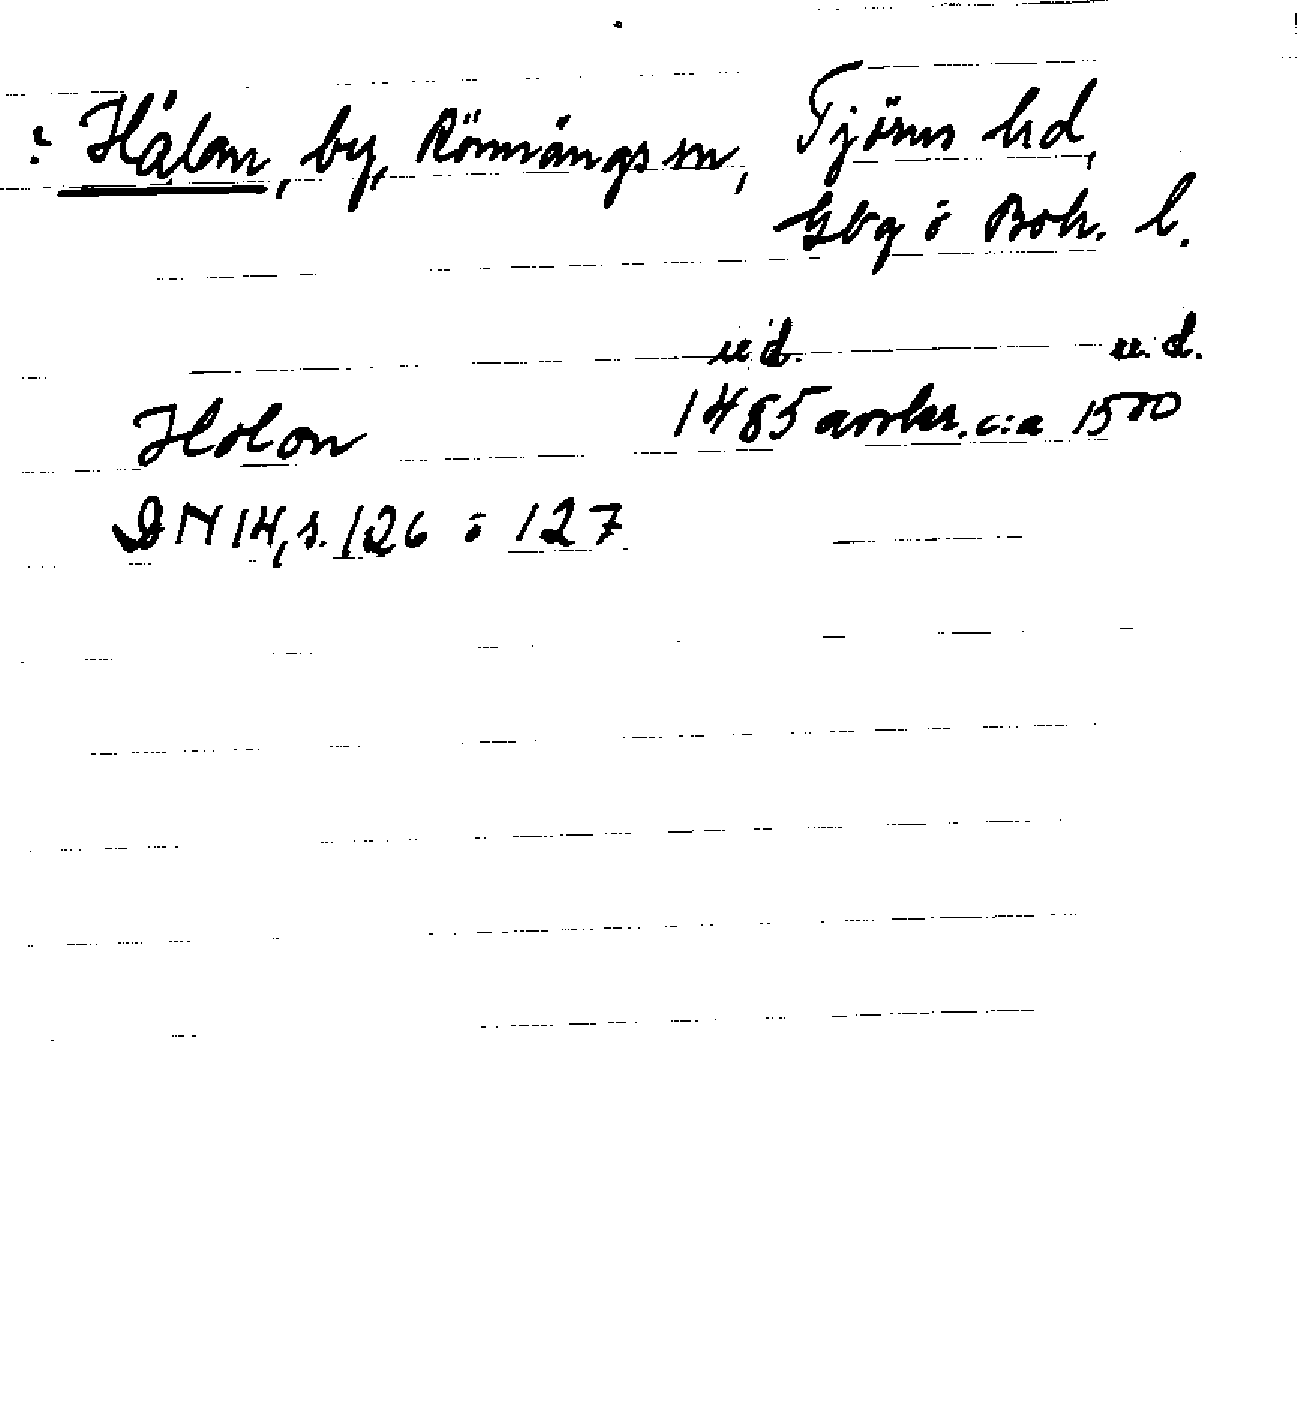 ? Hålan, by, Rönnängs sn, Tjörns hd,
Gbg o Boh. l.
u.d. u.d.
Holon 1485 avskr. c:a 1500
DN 14, s. 126 o 127